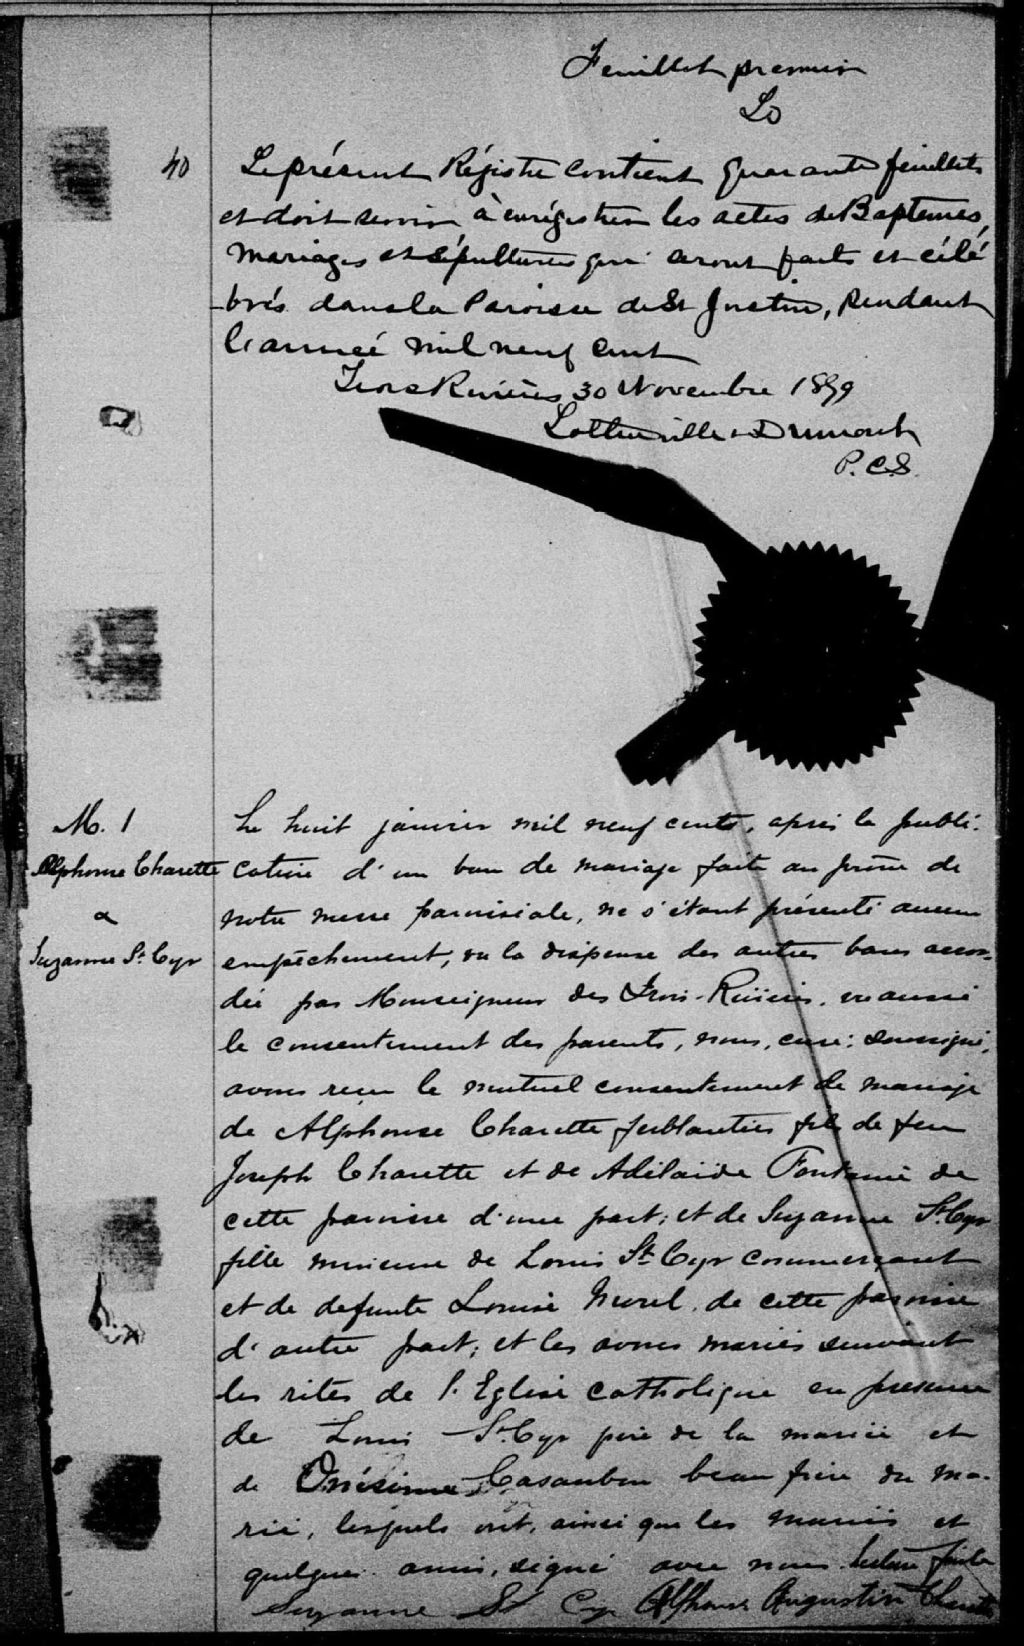 Feuillet premier
LD
40
Le présent Régistre contient quarante feuillets
et doit servir à enrégistrer les actes de Baptemes,
mariages et sépultures qui seront faits et célé
brés dans la Paroisse de St Justin, Pendant
l'année mil neuf cent
Trois Rivières 30 Novembre 1899
Lottinville & Dumont
P. C. S.
M. 1
Alphonse Charette
&
Suzanne St. Cyr
Le huit janvier mil neuf cents, après la publi-
cation d'un ban de mariage faite au prône de
notre messe paroissiale, ne s'étant présenté aucun
empêchement, vu la dispense des autres bans accor-
dée par Monseigneur des Trois-Rivières, vu aussi
le consentement des parents, nous, curé soussigné,
avons reçu le mutuel consentement de mariage
de Alphonse Charette ferblantier fils de feu
Joseph Charette et de Adélaide Fontaine de
cette paroisse d'une part; et de Suzanne St. Cyr
fille mineure de Louis St. Cyr commerçant
et de defunte Louise Morel, de cette paroisse
d'autre part; et les avons mariés suivant
les rites de l'Eglise catholique en presence
de Louis St. Cyr père de la mariée et
de Onésime Casaubon beau frère du ma-
rié, lesquels ont, ainsi que les mariés et
quelques amis, signé avec nous. Lecture faite
Suzanne St Cyr Alphonse Augustin Charette